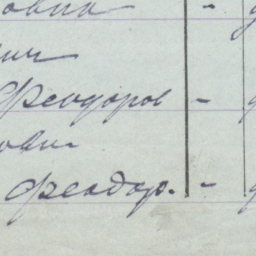 овна -
вич
Феодоров -
овн.
феодор. -